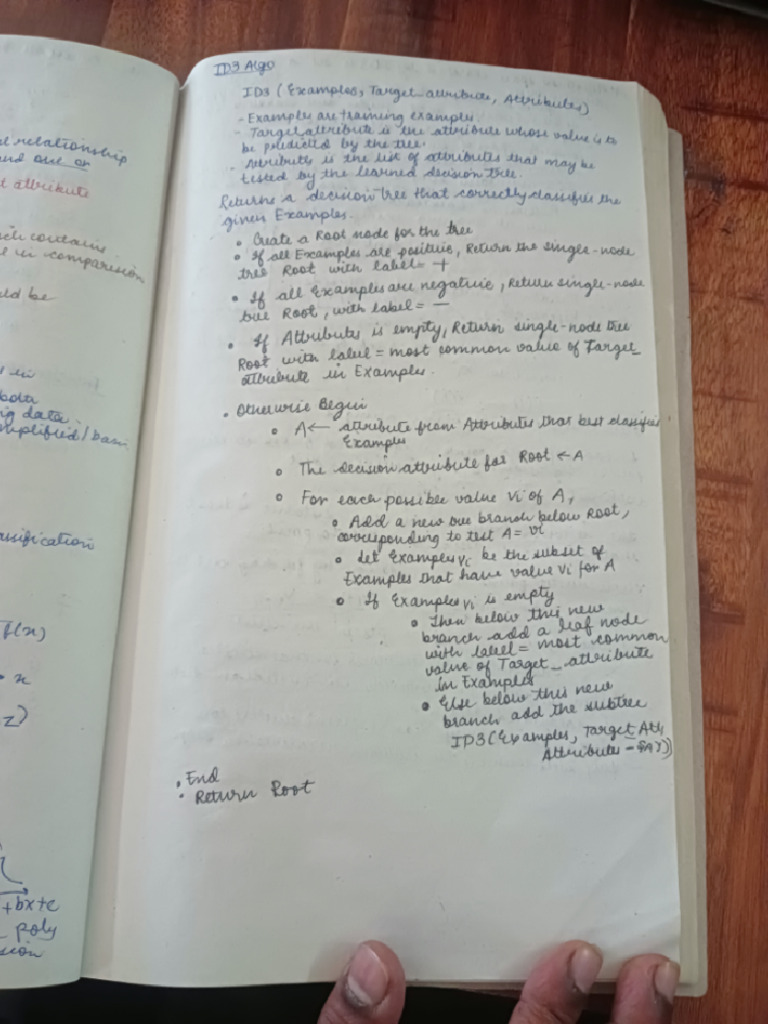 al relationship
and one or
t attribute
ich contains
l in comparision
uld be
l in
ng data.
mplified/
assification
f(x)
x
z)
+bx+c
poly
sion
ID3 Algo
ID3 (Examples, Target_attribute, Attributes)
- Examples are training examples.
- Target attribute is the attribute whose value is to
be predicted by the tree.
- Attributes is the list of attributes that may be
tested by the learned decision tree.
Returns a decision tree that correctly classifies the
given Examples.
• Create a Root node for the tree
• If all Examples are positive, Return the single-node
tree Root with label = +
• If all Examples are negative, Return single-node
tree Root, with label = −
• If Attributes is empty, Return single-node tree
Root with label = most common value of Target_
attribute in Examples.
• Otherwise Begin
• A ← attribute from Attributes that best classifies
Examples
• The decision attribute for Root ← A
• For each possible value Vi of A,
• Add a new tree branch below Root,
corresponding to test A = vi
• Let Examples vi be the subset of
Examples that have value vi for A
• If Examples vi is empty
• Then below this new
branch add a leaf node
with label = most common
value of Target_attribute
in Examples
• Else below this new
branch add the subtree
ID3(Examples, Target_Att,
Attributes - {A}))
• End
• Return Root